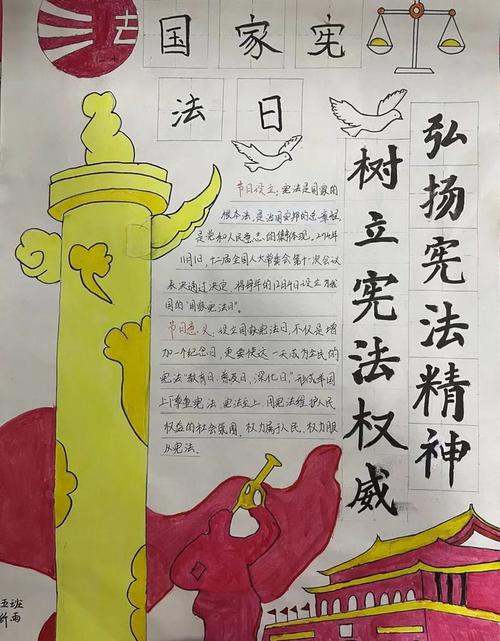 法
国家宪
法日
弘扬宪法精神
树立宪法权威
节日设立:宪法是国家的
根本法,是治国安邦的总章程,
是党和人民意志的集中体现。2014年
11月1日,十二届全国人大常委会第十一次会议
表决通过决定,将每年的12月4日设立为我
国的“国家宪法日”。
节日意义:设立国家宪法日,不仅是增
加一个纪念日,更要使这一天成为全民的
宪法“教育日、普及日、深化日。”形成举国
上下尊重宪法、宪法至上、用宪法维护人民
权益的社会氛围。权力属于人民,权力服
从宪法。
五班
雨